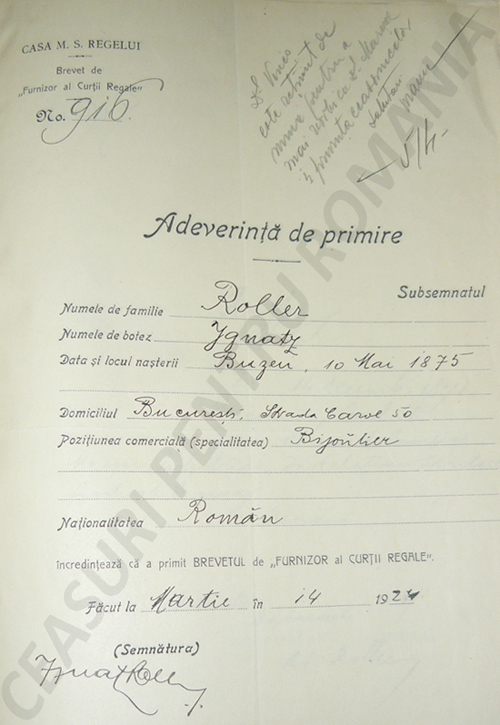 CASA M. S. REGELUI
Brevet de
„Furnizor al Curții Regale"
No. 916.
este
mai
Adeverință de primire
Subsemnatul
Numele de familie Roller
Numele de botez Ignatz
Data și locul nașterii Buzeu, 10 Mai 1875
Domiciliul București, Strada Carol 50
Pozițiunea comercială (specialitatea) Bijoutier
Naționalitatea Român
încredințează că a primit BREVETUL de „FURNIZOR al CURȚII REGALE".
Făcut la Martie în 14 192
(Semnătura)
Ignat Roller
CEASURI PENTRU ROMANIA